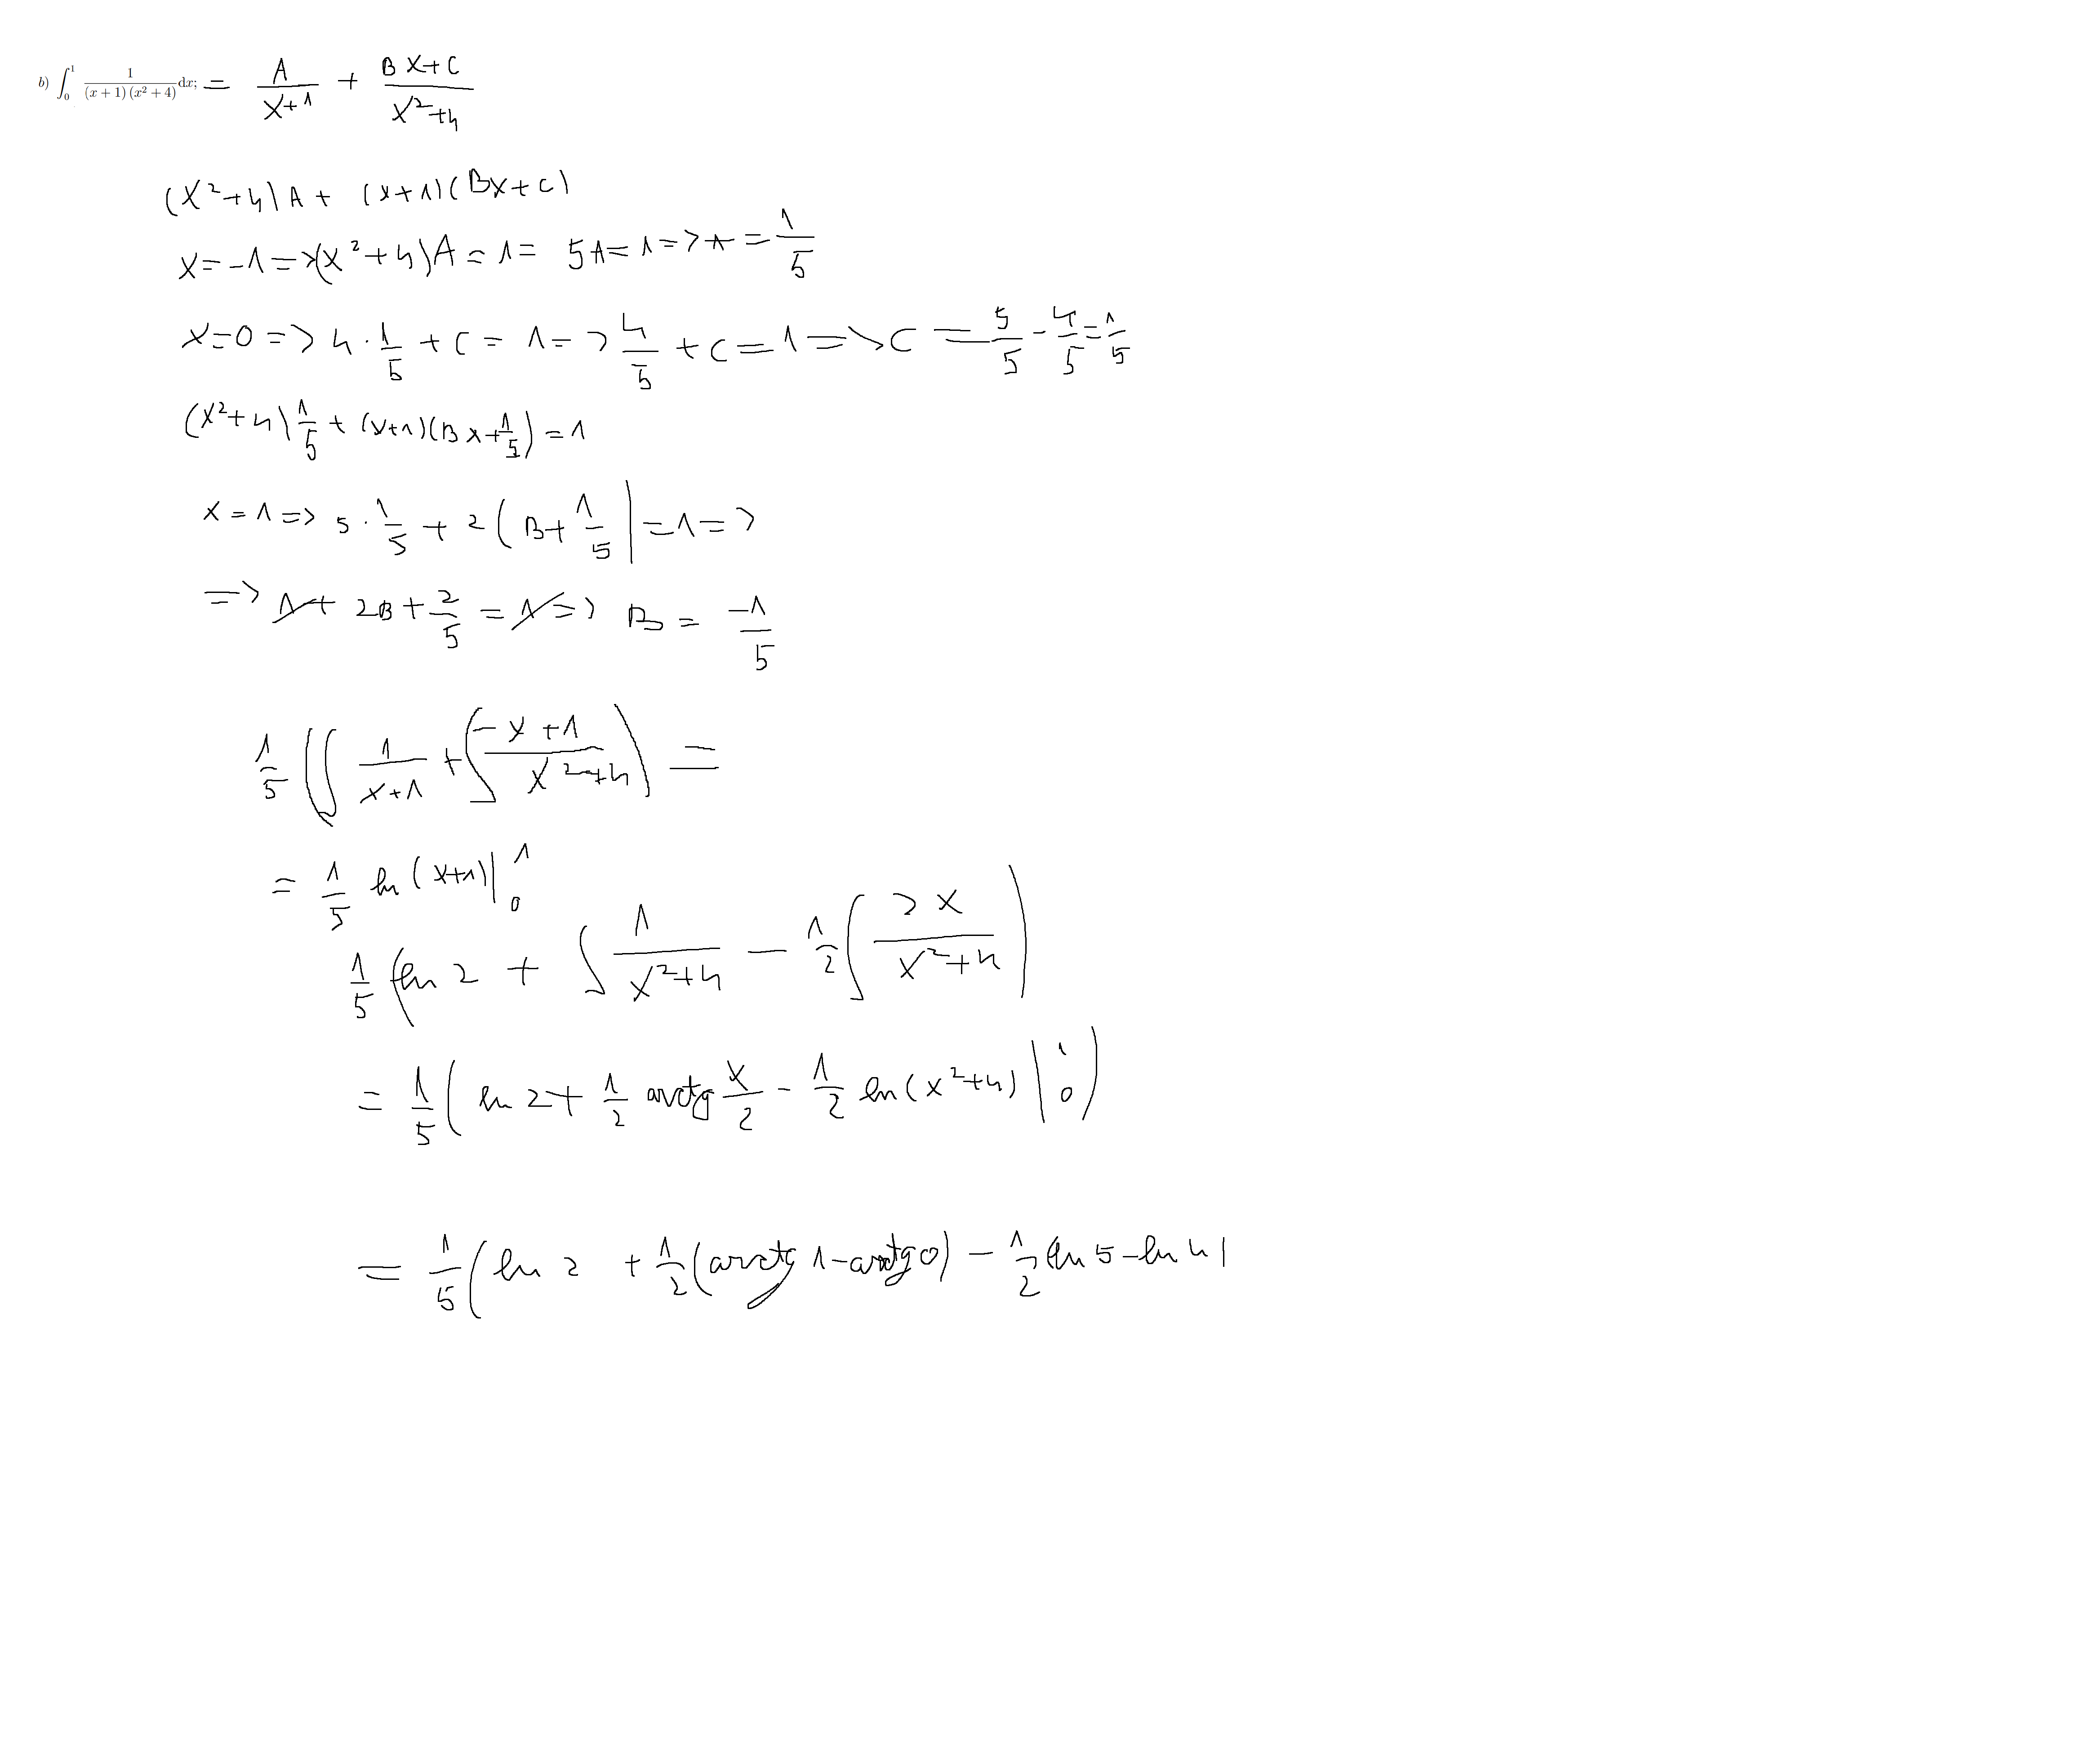 b) ∫₀¹ 1/((x + 1)(x² + 4)) dx; = A/(x+1) + (Bx+C)/(x²+4)
(x²+4)A + (x+1)(Bx+c)
x=-1=>(x²+4)A=1= 5A=1=>A=1/5
x=0=>4·1/5+C=1=>4/5+C=1=>C=5/5-4/5=1/5
(x²+4)1/5+(x+1)(Bx+1/5)=1
x=1=>5·1/5+2(B+1/5)=1=>
=>1+2B+2/5=1=> B=-1/5
1/5(∫1/(x+1)+∫(-x+1)/(x²+4))=
=1/5 ln(x+1)|₀¹
1/5(ln 2+∫1/(x²+4)-1/2∫2x/(x²+4))
=1/5(ln 2+1/2 arctg x/2-1/2 ln(x²+4)|₀¹)
=1/5(ln 2+1/2(arctg 1-arctg 0)-1/2(ln 5-ln 4)